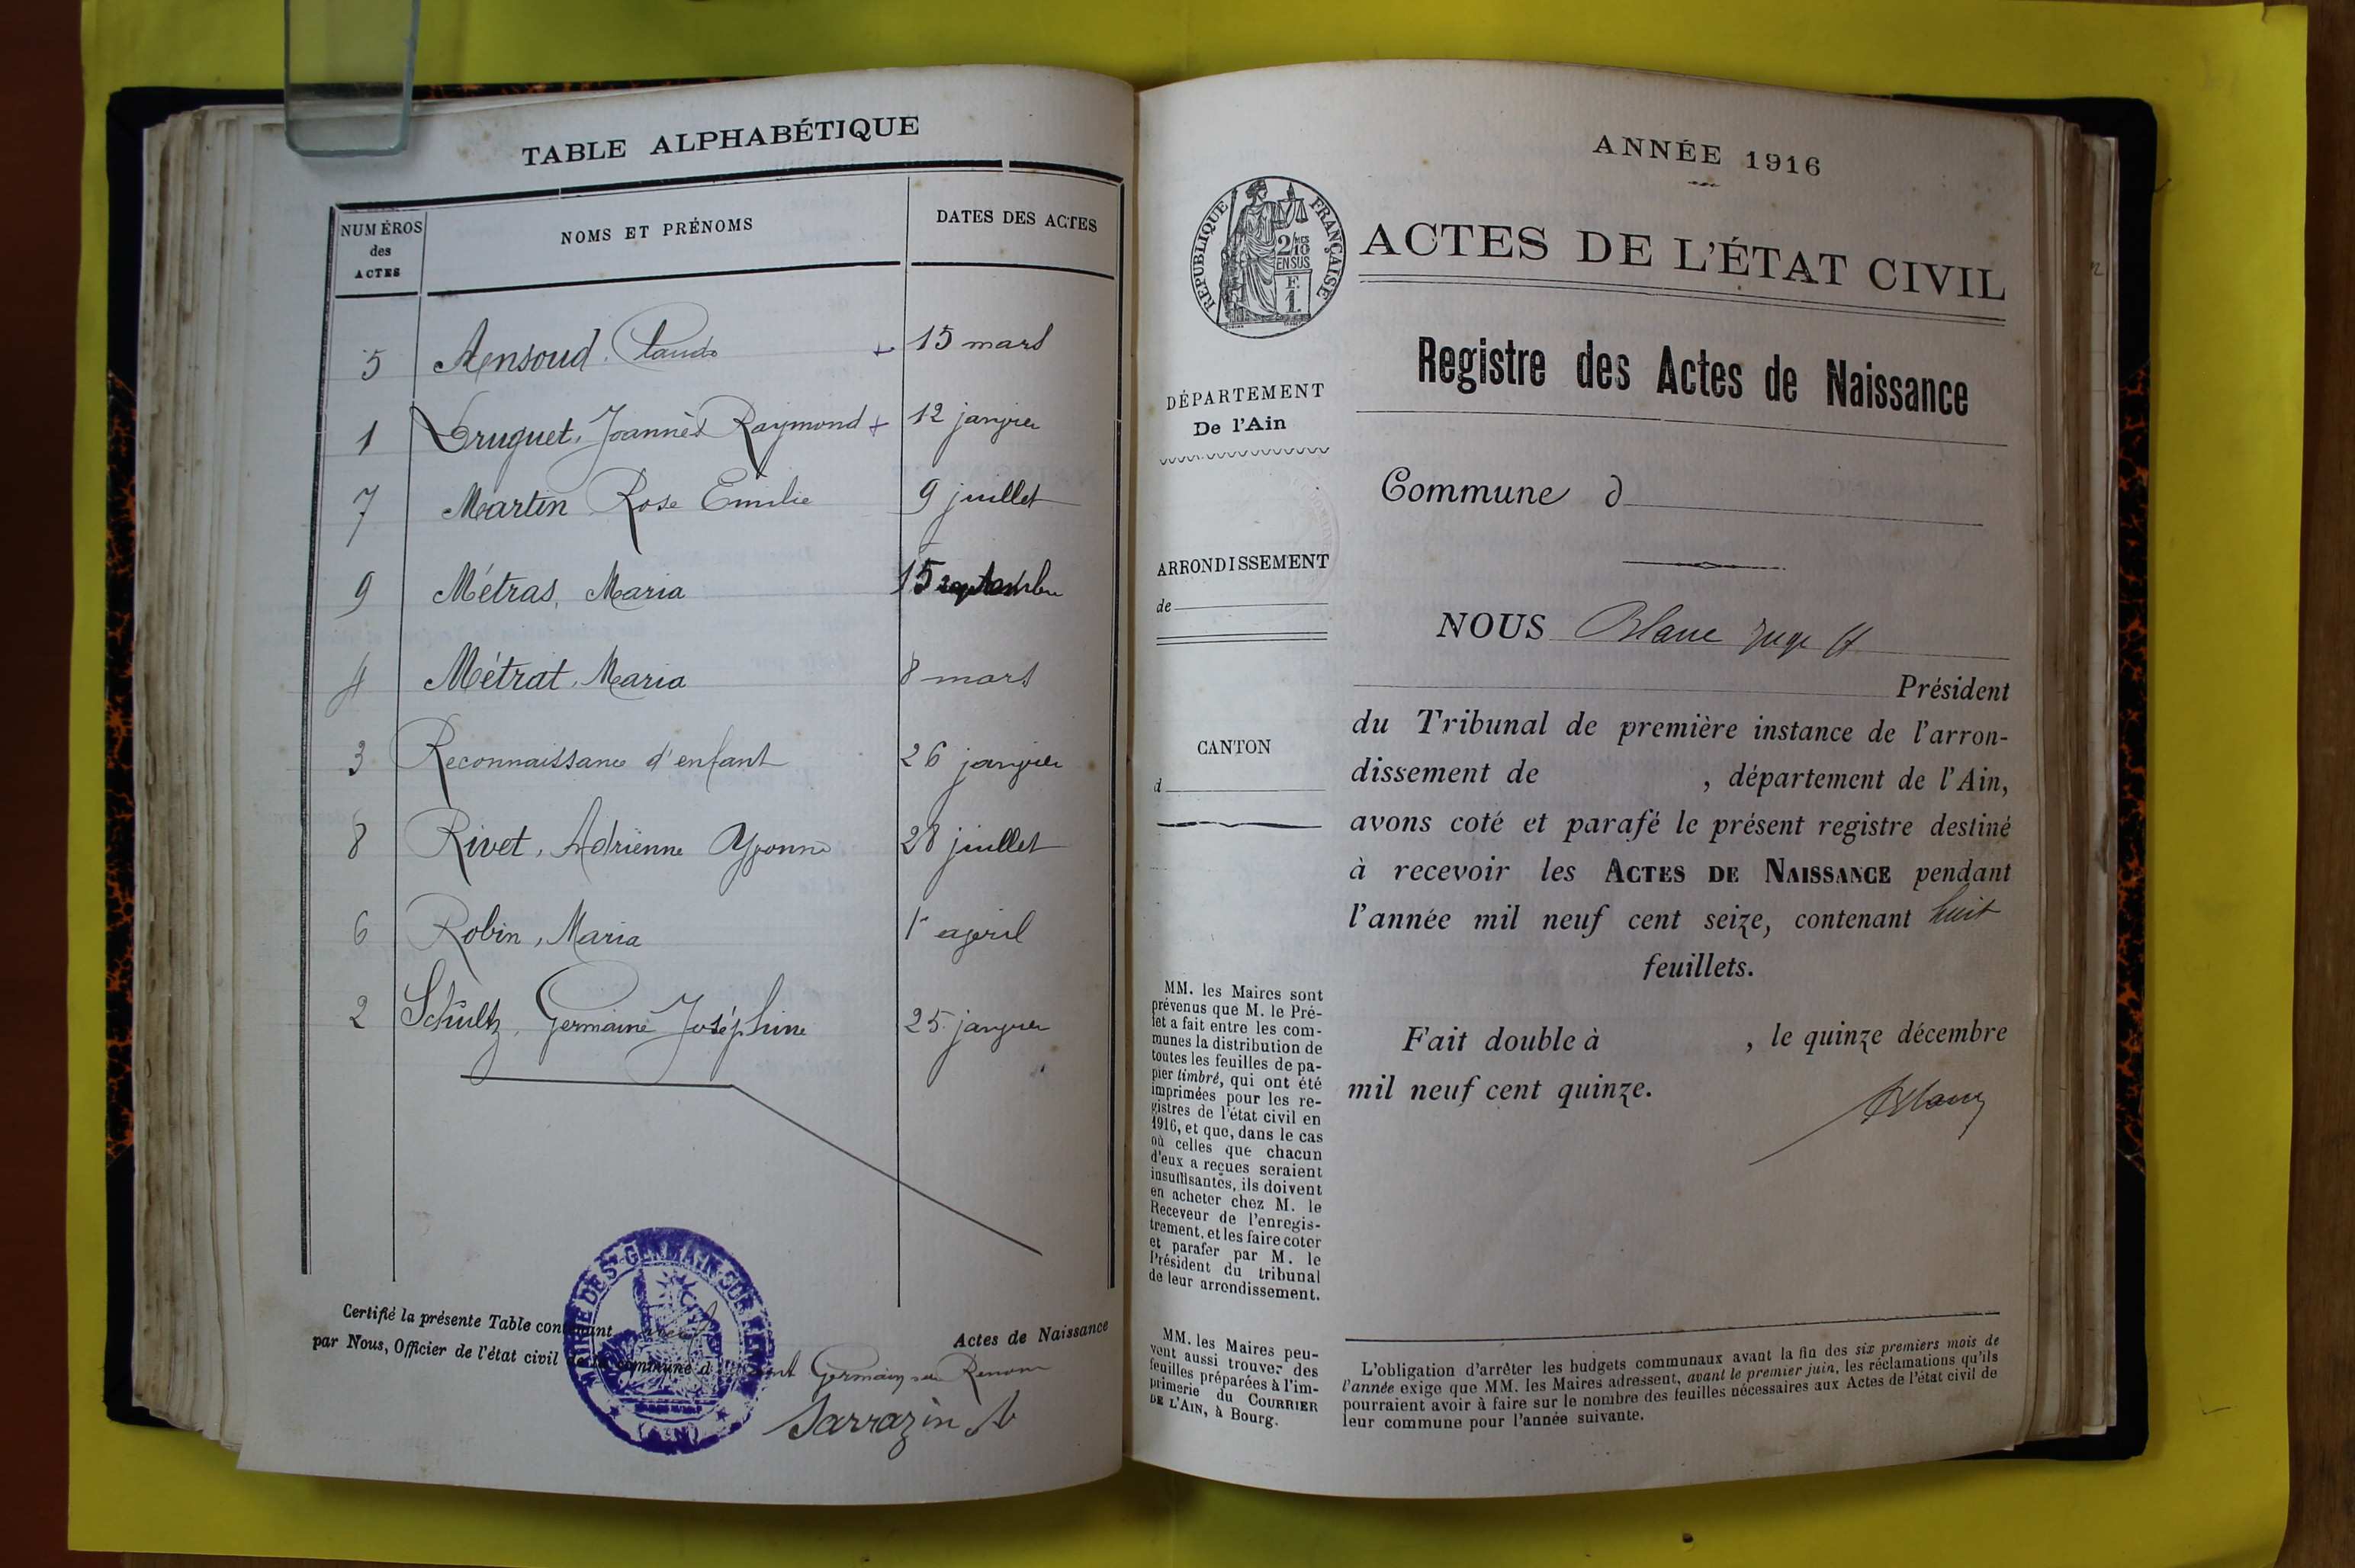 TABLE ALPHABÉTIQUE
NUMÉROS des ACTES
NOMS ET PRÉNOMS
DATES DES ACTES
5 Mensoud. Claude + 15 mars
1 Druguet, Joannès Raymond + 12 janvier
7 Martin Rose Emilie 9 juillet
9 Métras, Maria 15 septembre
4 Métrat, Maria 8 mars
3 Reconnaissance d'enfant 26 janvier
8 Rivet, Adrienne Yvonne 28 juillet
6 Robin, Maria 1r avril
2 Schultz, Germaine Joséphine 25 janvier
Certifié la présente Table contenant neuf Actes de Naissance
par Nous, Officier de l'état civil de la commune d Saint Germain sur Renom
MAIRIE DE ST GERMAIN SUR RENON
(AIN)
Sarrazin
ANNÉE 1916
RÉPUBLIQUE FRANÇAISE
2/10
EN SUS
F.
1
ACTES DE L'ÉTAT CIVIL
Registre des Actes de Naissance
DÉPARTEMENT
De l'Ain
Commune d
ARRONDISSEMENT
de
CANTON
d
NOUS Blanc Juge ff
Président
du Tribunal de première instance de l'arron-
dissement de , département de l'Ain,
avons coté et parafé le présent registre destiné
à recevoir les ACTES DE NAISSANCE pendant
l'année mil neuf cent seize, contenant huit
feuillets.
Fait double à , le quinze décembre
mil neuf cent quinze.
Blanc
MM. les Maires sont
prévenus que M. le Pré-
fet a fait entre les com-
munes la distribution de
toutes les feuilles de pa-
pier timbré, qui ont été
imprimées pour les re-
gistres de l'état civil en
1916, et que, dans le cas
où celles que chacun
d'eux a reçues seraient
insuffisantes, ils doivent
en acheter chez M. le
Receveur de l'enregis-
trement, et les faire coter
et parafer par M. le
Président du tribunal
de leur arrondissement.
MM. les Maires peu-
vent aussi trouver des
feuilles préparées à l'im-
primerie du COURRIER
DE L'AIN, à Bourg.
L'obligation d'arrêter les budgets communaux avant la fin des six premiers mois de
l'année exige que MM. les Maires adressent, avant le premier juin, les réclamations qu'ils
pourraient avoir à faire sur le nombre des feuilles nécessaires aux Actes de l'état civil de
leur commune pour l'année suivante.